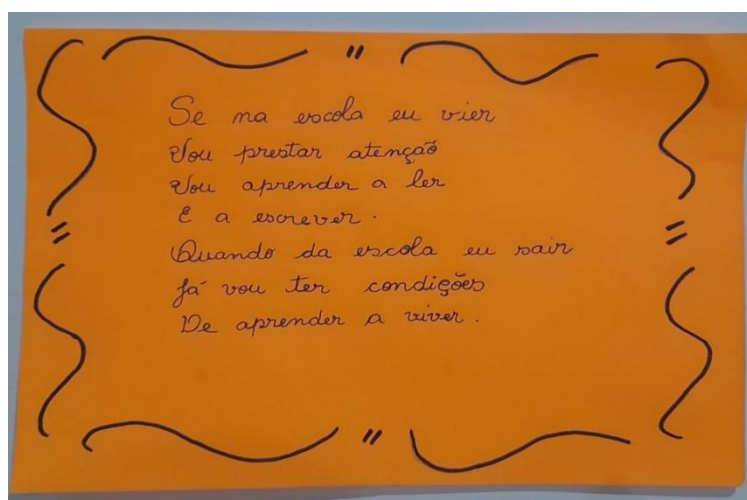 Se na escola eu vier
Vou prestar atenção
Vou aprender a ler
E a escrever.
Quando da escola eu sair
Já vou ter condições
De aprender a viver.